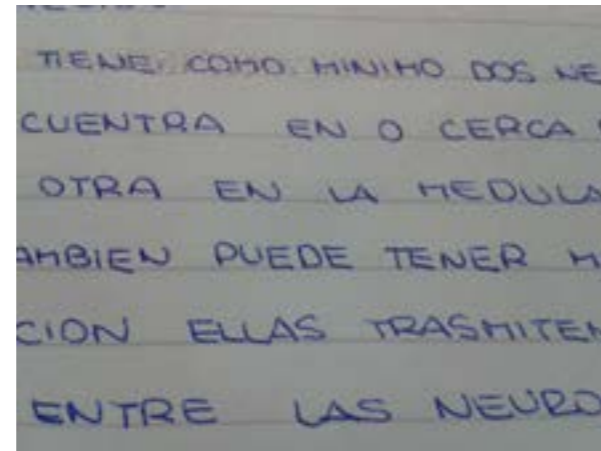 TIENE COMO MINIMO DOS NE
CUENTRA EN O CERCA
OTRA EN LA MEDULA
AMBIEN PUEDE TENER M
CION ELLAS TRASMITEN
ENTRE LAS NEURO